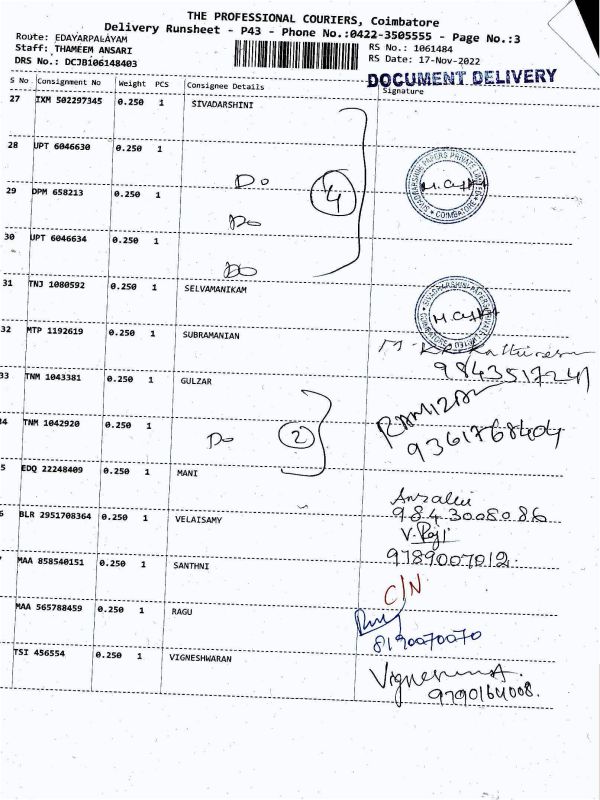 THE PROFESSIONAL COURIERS, Coimbatore
Delivery Runsheet - P43 - Phone No.:0422-3505555 - Page No.:3
Route: EDAYARPALAYAM
Staff: THAMEEM ANSARI
DRS No.: DCJB106148403
RS No.: 1061484
RS Date: 17-Nov-2022
DOCUMENT DELIVERY
S No Consignment No Weight PCS Consignee Details Signature
27 IXM 502297345 0.250 1 SIVADARSHINI
28 UPT 6046630 0.250 1
Do
4
29 DPM 658213 0.250 1
Do
30 UPT 6046634 0.250 1
Do
31 TNJ 1080592 0.250 1 SELVAMANIKAM
32 MTP 1192619 0.250 1 SUBRAMANIAN
9843517241
33 TNM 1043381 0.250 1 GULZAR
RAMIZA
34 TNM 1042920 0.250 1 Do 2
9361768404
5 EDQ 22248409 0.250 1 MANI
9843008086
6 BLR 2951708364 0.250 1 VELAISAMY
V. Raji
9789007012.
7 MAA 858540151 0.250 1 SANTHNI
C/N
MAA 565788459 0.250 1 RAGU
8190070070
TSI 456554 0.250 1 VIGNESHWARAN
9790164008.